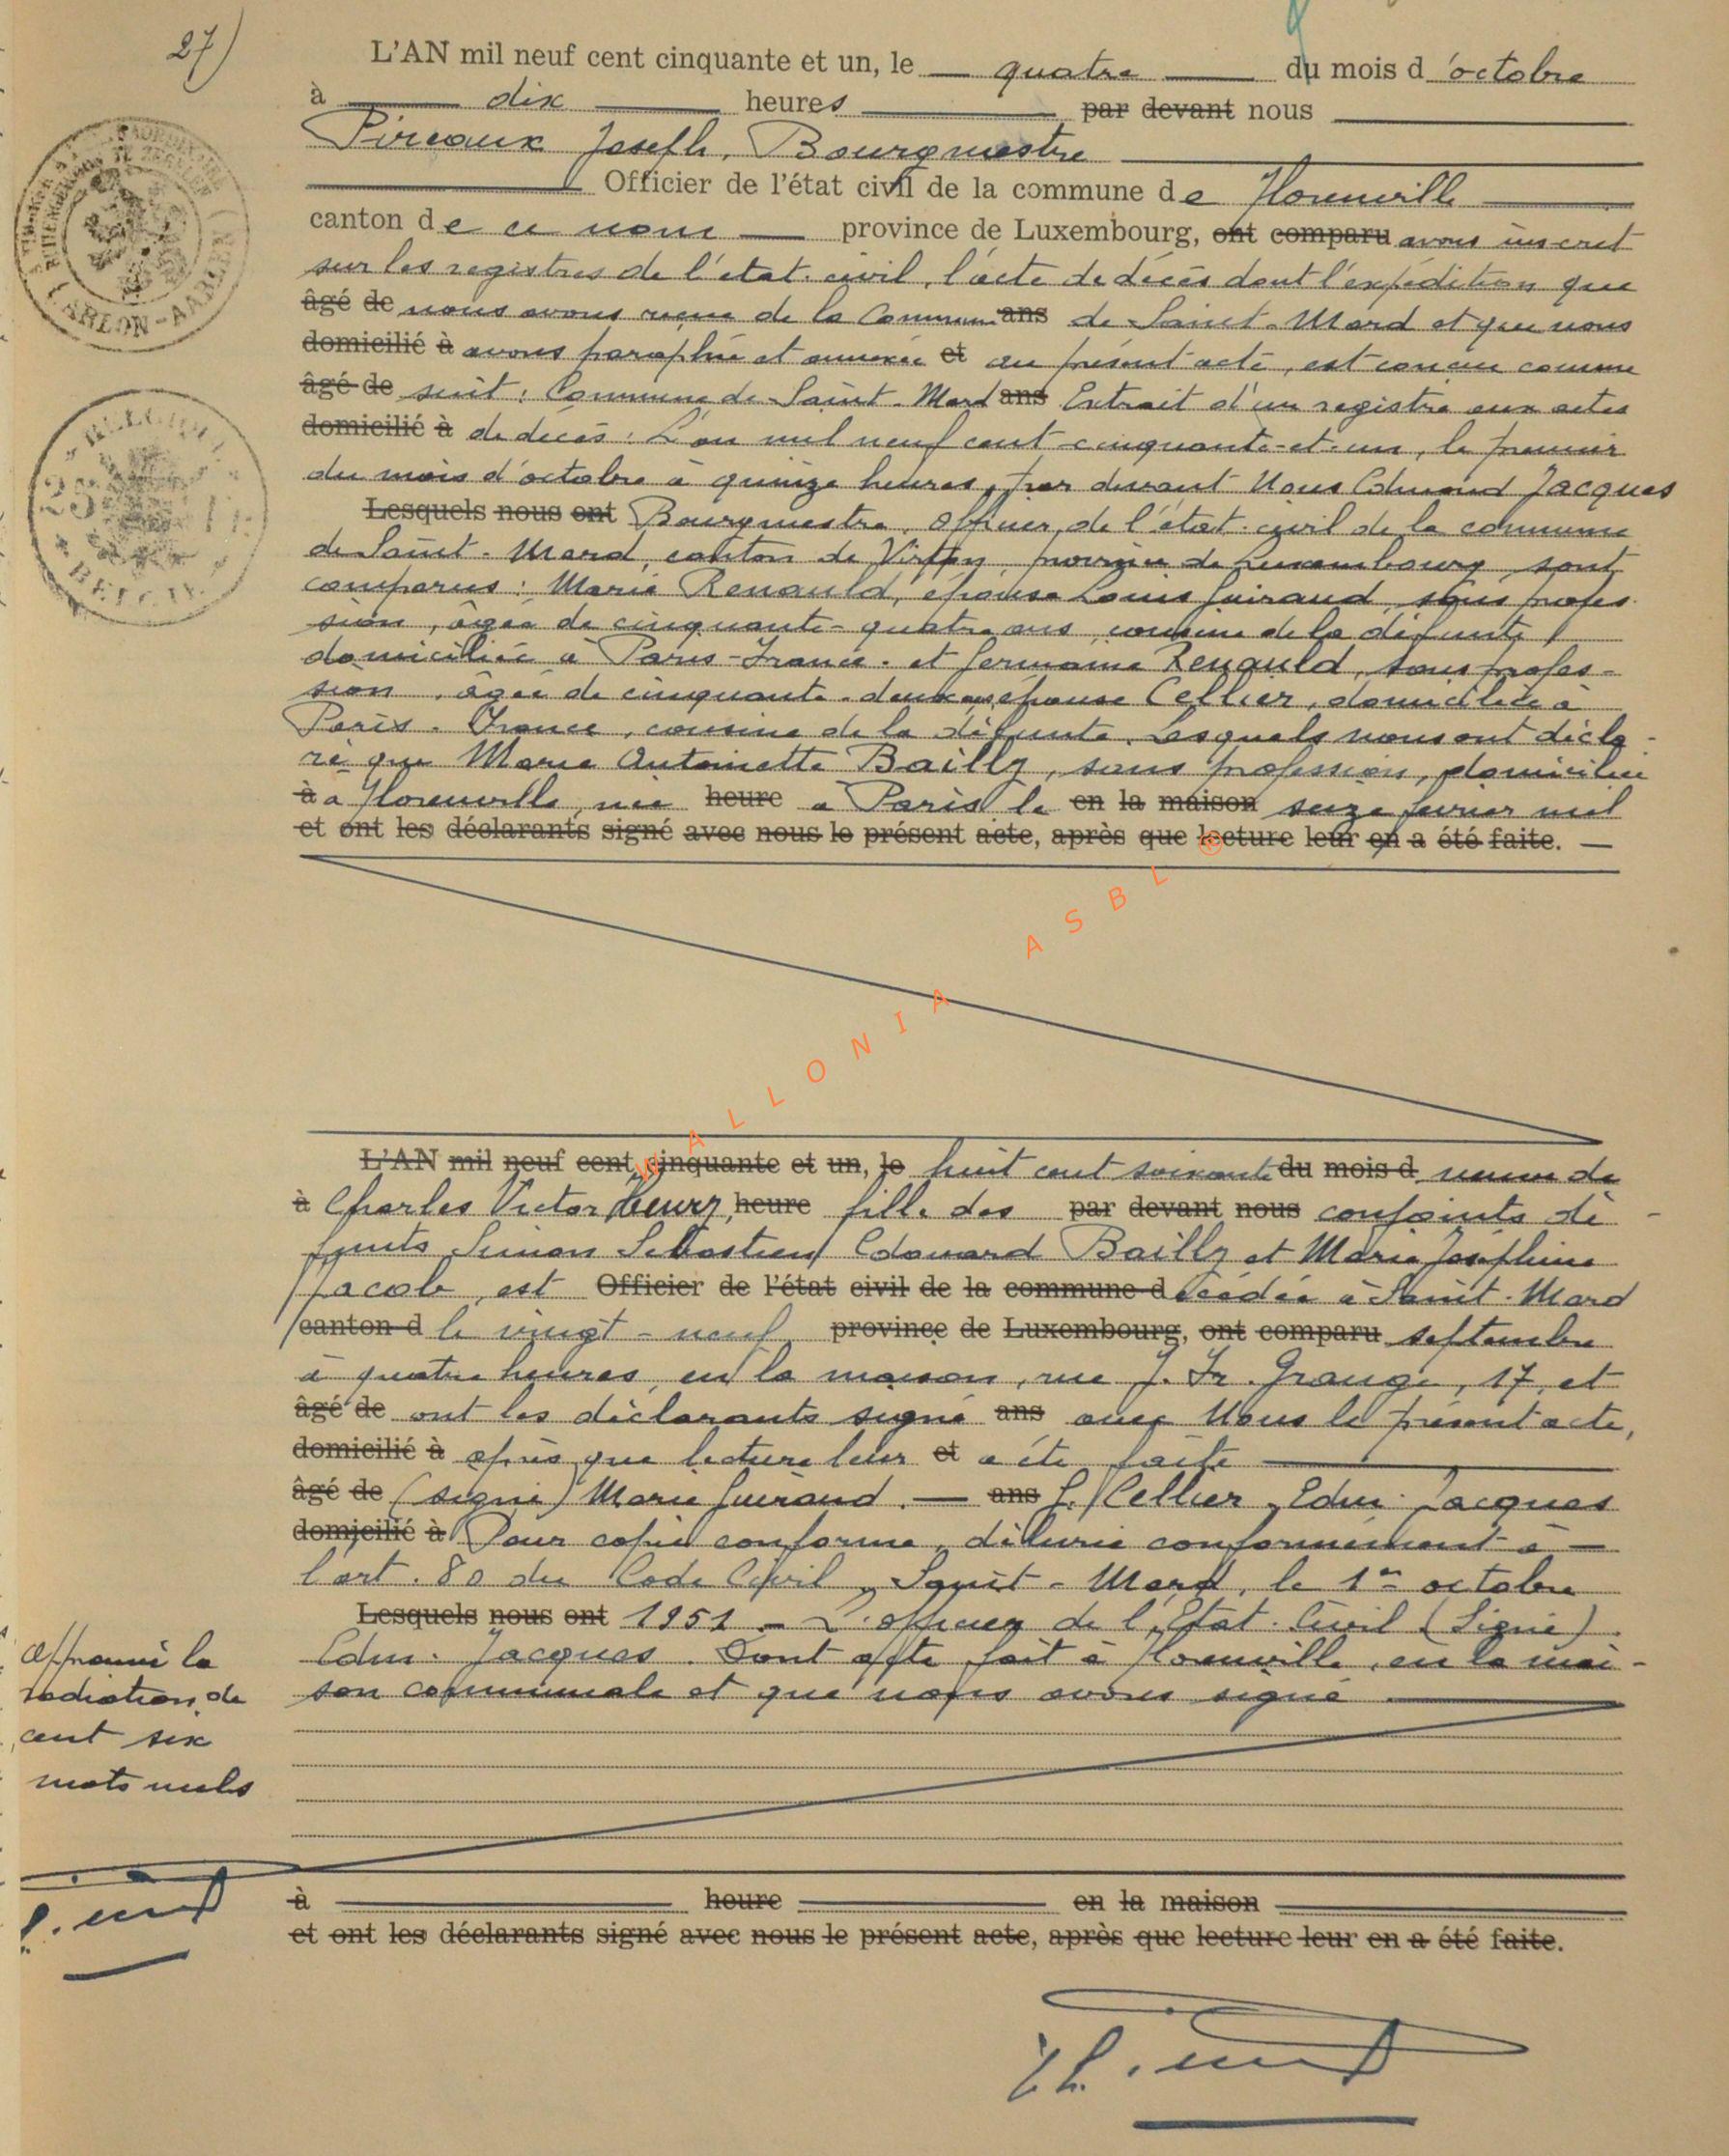 27)
L'AN mil neuf cent cinquante et un, le quatre du mois d'octobre
à dix heures par devant nous
Pireaux Joseph, Bourgmestre
Officier de l'état civil de la commune de Florenville
canton de ce nom province de Luxembourg, ont comparu avons inscrit
sur les registres de l'état-civil, l'acte de décès dont l'expédition que
âgé de nous avons reçue de la Commune ans de Saint-Mard et que nous
domicilié à avons paraphée et annexée et au présent acte, est conçu comme
âgé de suit : Commune de Saint-Mard ans Extrait d'un registre aux actes
domicilié à de décès : L'an mil neuf cent cinquante-et-un, le premier
du mois d'octobre à quinze heures, par devant Nous Edmond Jacques
Lesquels nous ont Bourgmestre, Officier de l'état-civil de la commune
de Saint-Mard, canton de Virton, province de Luxembourg, sont
comparus : Marie Renauld, épouse Louis Guiraud, sans profes-
sion, âgée de cinquante-quatre ans, cousine de la défunte,
domiciliée à Paris-France. et Germaine Renauld, sans profes-
sion, âgée de cinquante-deux ans, épouse Cellier, domiciliée à
Paris-France, cousine de la défunte. Lesquels nous ont décla-
ré que Marie Antoinette Bailly, sans profession, domiciliée
à à Florenville, née heure à Paris le en la maison seize février mil
et ont les déclarants signé avec nous le présent acte, après que lecture leur en a été faite.
WALLONIA ASBL ®
L'AN mil neuf cent cinquante et un, le huit cent soixante du mois d veuve de
à Charles Victor heure fille des par devant nous conjoints dé-
funts Simon Sébastien Edouard Bailly et Marie Joséphine
Jacob, est Officier de l'état civil de la commune d décédée à Saint-Mard
canton d le vingt-neuf province de Luxembourg, ont comparu septembre
à quatre heures, en la maison, rue J. Fr. Grange, 17, et
âgé de ont les déclarants signé ans avec Nous le présent acte,
domicilié à après que lecture leur et a été faite
âgé de (signé) Marie Guiraud. — ans G. Cellier, Edm. Jacques
domicilié à Pour copie conforme, délivrée conformément à
l'art. 80 du Code Civil, Saint-Mard, le 1er octobre
Lesquels nous ont 1951 - L'officier de l'Etat-Civil (Signé)
Edm. Jacques. Dont acte fait à Florenville, en la mai-
son communale et que nous avons signé
Approuvé la
radiation de
cent six
mots nuls
à heure en la maison
et ont les déclarants signé avec nous le présent acte, après que lecture leur en a été faite.
ARLON-AARLEN
BELGIQUE
BELGIE